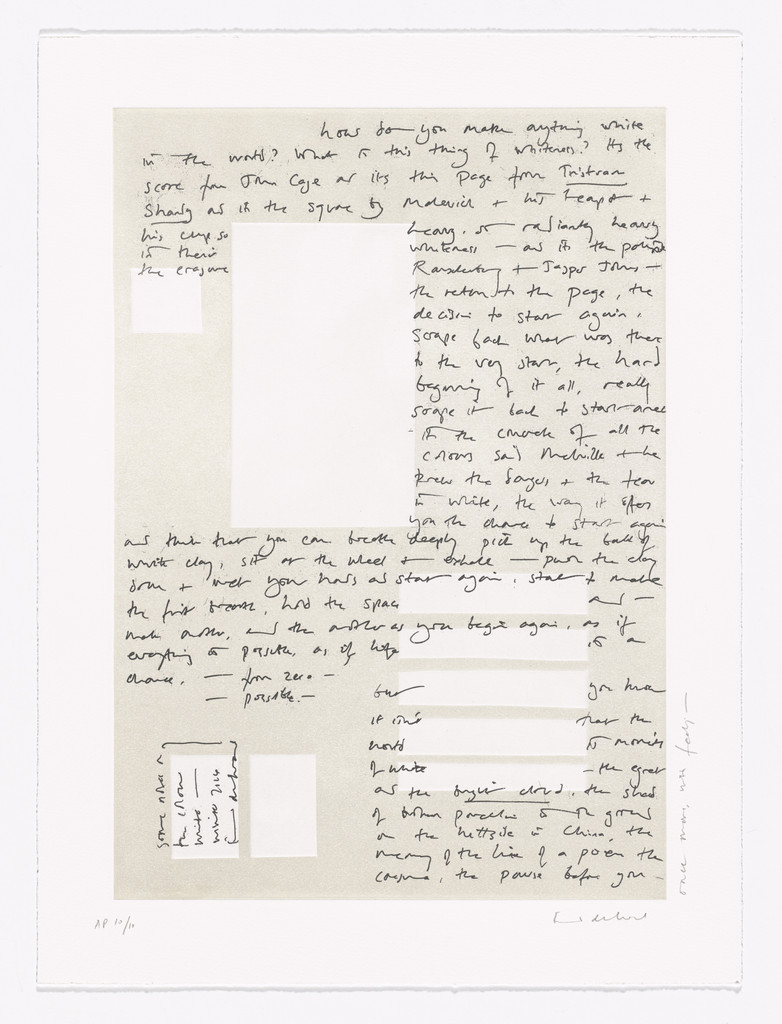 how do you make anything white
in the world? What is this thing of whiteness? Its the
score from John Cage as its this page from Tristram
Shandy as is the square by Malevich + his teapot +
his cup so
is their
the erasure
heavy, so radiantly heavy
whiteness — as is the
Rauschenberg + Jasper Johns —
the return to the page, the
decision to start again.
Scrape back what was there
to the very start, the hard
beginning of it all, really
scrape it back to start
is the of all the
colours said Melville + he
knew the dangers + the fear
in white, the way it offers
you the chance to start again
and think that you can breathe deeply pick up the ball of
white clay, sit at the wheel + exhale — push the clay
down + wet your hands and start again, start to make
the first breath, hold the space and —
make another, and then another as you begin again, as if
everything is possible, as if life is a
chance. — from zero —
— possible. —
but you know
it isn't that the
world is
of white — the egret
as the bright cloud, the shard
of broken porcelain is on the ground
on the hillside in China, the
memory of the line of a poem the
caesura, the pause before you —
some notes on
the colour
white —
winter 2014
once more, use
AP 10/11